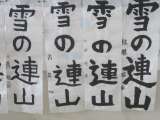 雪の連山
雪の連山
雪の連山
雪の連山